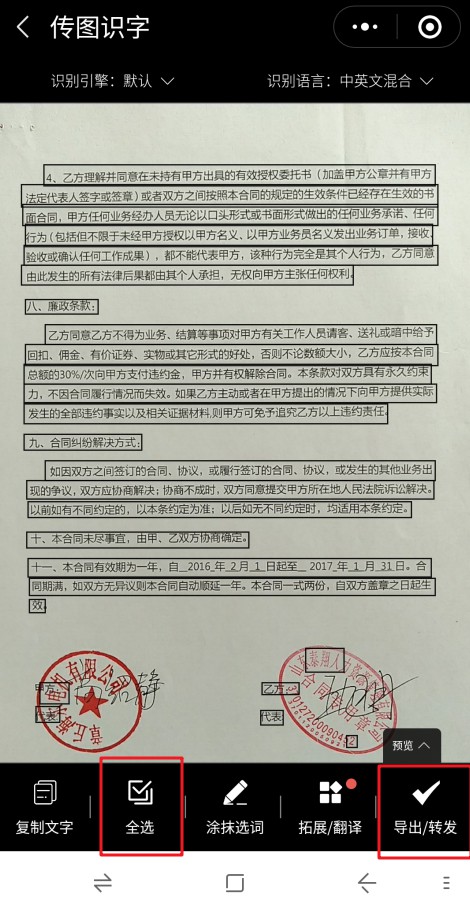 传图识字
识别引擎：默认
识别语言：中英文混合
4、乙方理解并同意在未持有甲方出具的有效授权委托书（加盖甲方公章并有甲方
法定代表人签字或签章）或者双方之间按照本合同的规定的生效条件已经存在生效的书
面合同，甲方任何业务经办人员无论以口头形式或书面形式做出的任何业务承诺、任何
行为（包括但不限于未经甲方授权以甲方名义、以甲方业务员名义发出业务订单，接收、
验收或确认任何工作成果），都不能代表甲方，该种行为完全是其个人行为，乙方同意
由此发生的所有法律后果都由其个人承担，无权向甲方主张任何权利。
八、廉政条款：
乙方同意乙方不得为业务、结算等事项对甲方有关工作人员请客、送礼或暗中给予
回扣、佣金、有价证券、实物或其它形式的好处，否则不论数额大小，乙方应按本合同
总额的30%/次向甲方支付违约金，甲方并有权解除合同。本条款对双方具有永久约束
力，不因合同履行情况而失效。如果乙方主动或者在甲方提出的情况下向甲方提供实际
发生的全部违约事实以及相关证据材料,则甲方可免予追究乙方以上违约责任。
九、合同纠纷解决方式：
如因双方之间签订的合同、协议，或履行签订的合同、协议，或发生的其他业务出
现的争议，双方应协商解决；协商不成时，双方同意提交甲方所在地人民法院诉讼解决。
以前如有不同约定的，以本条约定为准；以后如无不同约定时，均适用本条约定。
十、本合同未尽事宜，由甲、乙双方协商确定。
十一、本合同有效期为一年，自 2016 年 2 月 1 日起至 2017 年 1 月 31 日。合
同期满，如双方无异议则本合同自动顺延一年。本合同一式两份，自双方盖章之日起生
效。
甲方
乙方
代表
代表
预览
复制文字
全选
涂抹选词
拓展/翻译
导出/转发